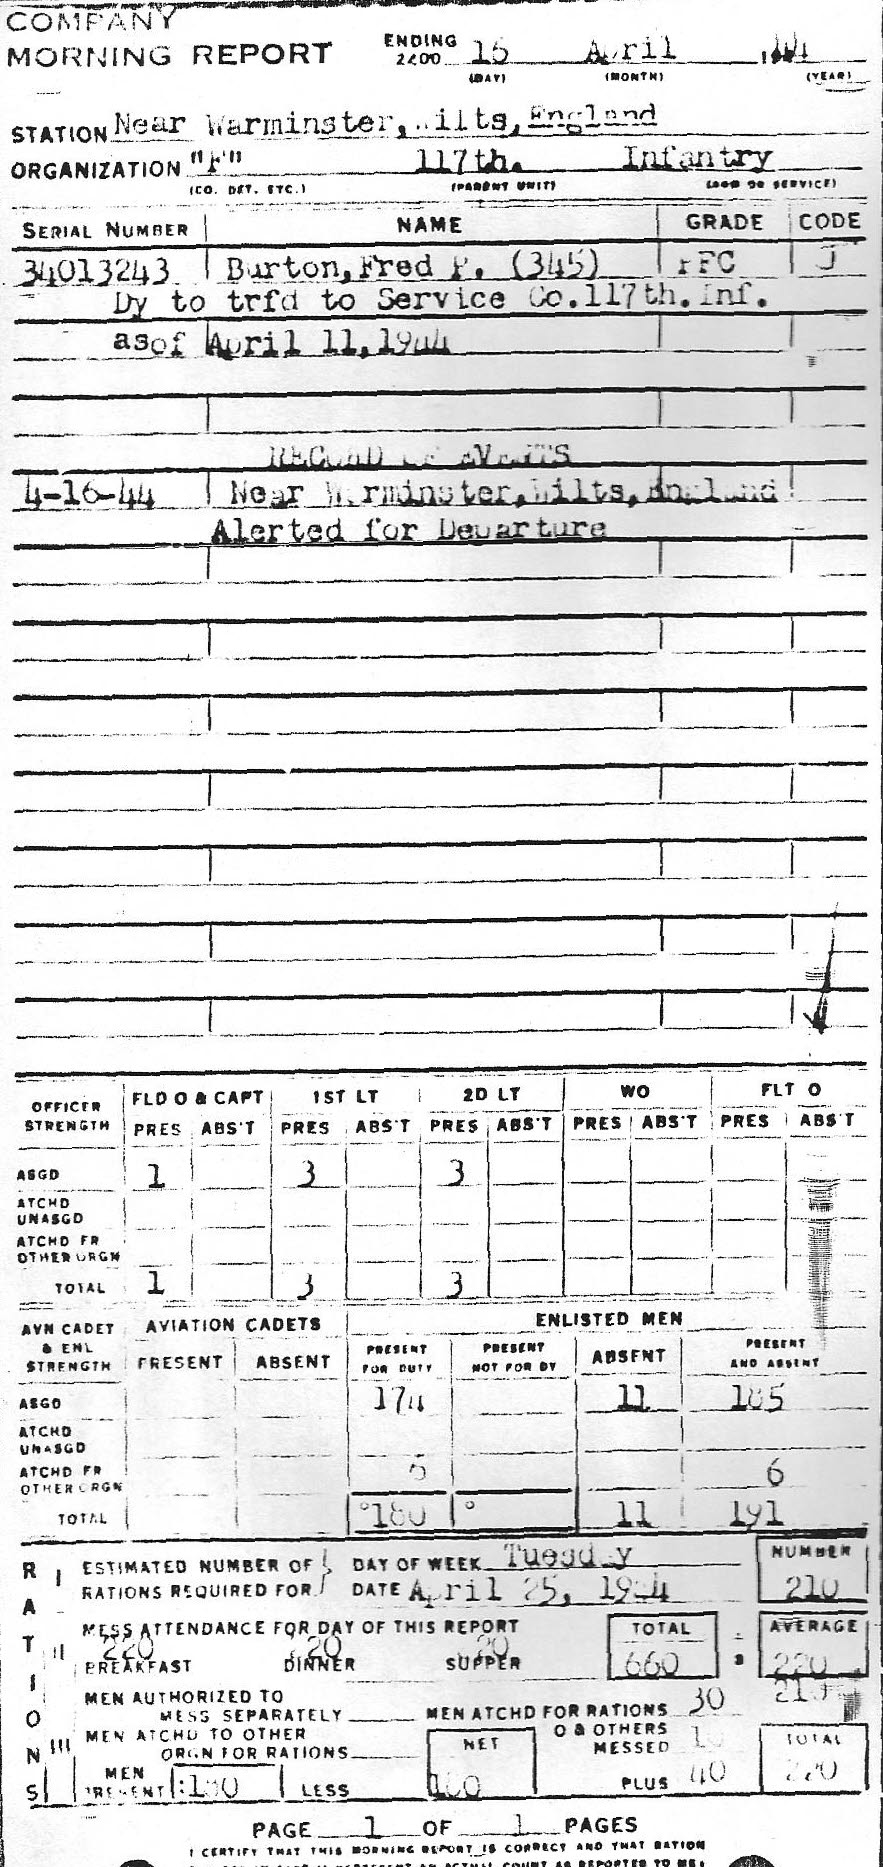 COMPANY
MORNING REPORT ENDING 2400 16 April
(DAY) (MONTH) (YEAR)
STATION Near Warminster, Wilts, England
ORGANIZATION "F" 117th. Infantry
(CO. DET. ETC.) (PARENT UNIT) (ARM OR SERVICE)
SERIAL NUMBER NAME GRADE CODE
34013243 Burton, Fred P. (345) PFC J
Dy to trfd to Service Co.117th.Inf.
asof April 11,1944
RECORD OF EVENTS
4-16-44 Near Warminster, Wilts, England
Alerted for Departure
OFFICER STRENGTH FLD O & CAPT 1ST LT 2D LT WO FLT O
PRES ABS'T PRES ABS'T PRES ABS'T PRES ABS'T PRES ABS'T
ASGD 1 3 3
ATCHD UNASGD
ATCHD FR OTHER ORGN
TOTAL 1 3 3
AVN CADET & ENL STRENGTH AVIATION CADETS ENLISTED MEN
PRESENT ABSENT PRESENT FOR DUTY PRESENT NOT FOR DY ABSENT PRESENT AND ABSENT
ASGD 174 11 185
ATCHD UNASGD
ATCHD FR OTHER ORGN 6
TOTAL 180 11 191
RATIONS
I ESTIMATED NUMBER OF RATIONS REQUIRED FOR DAY OF WEEK Tuesday NUMBER
DATE April 25, 1944 210
II MESS ATTENDANCE FOR DAY OF THIS REPORT TOTAL AVERAGE
220 220
BREAKFAST DINNER SUPPER 660 220
MEN AUTHORIZED TO MESS SEPARATELY MEN ATCHD FOR RATIONS 30
III MEN ATCHD TO OTHER ORGN FOR RATIONS NET O & OTHERS MESSED TOTAL
MEN PRESENT 180 LESS 180 PLUS 40 220
PAGE 1 OF 1 PAGES
I CERTIFY THAT THIS MORNING REPORT IS CORRECT AND THAT RATION